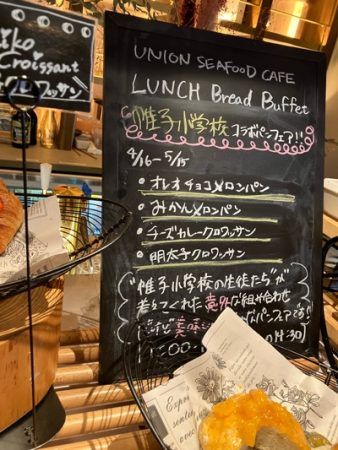 iko
Croissant
クロワッサン
UNION SEAFOOD CAFE
LUNCH Bread Buffet
帷子小学校
コラボパンフェア!!
4/16〜5/15
・オレオチョコメロンパン
・みかんメロンパン
・チーズカレークロワッサン
・明太子クロワッサン
"帷子小学校の生徒たち"が
考えてくれた意外な組み合わせ
だけど美味し なパンフェアです!!
11:00- 14:30]